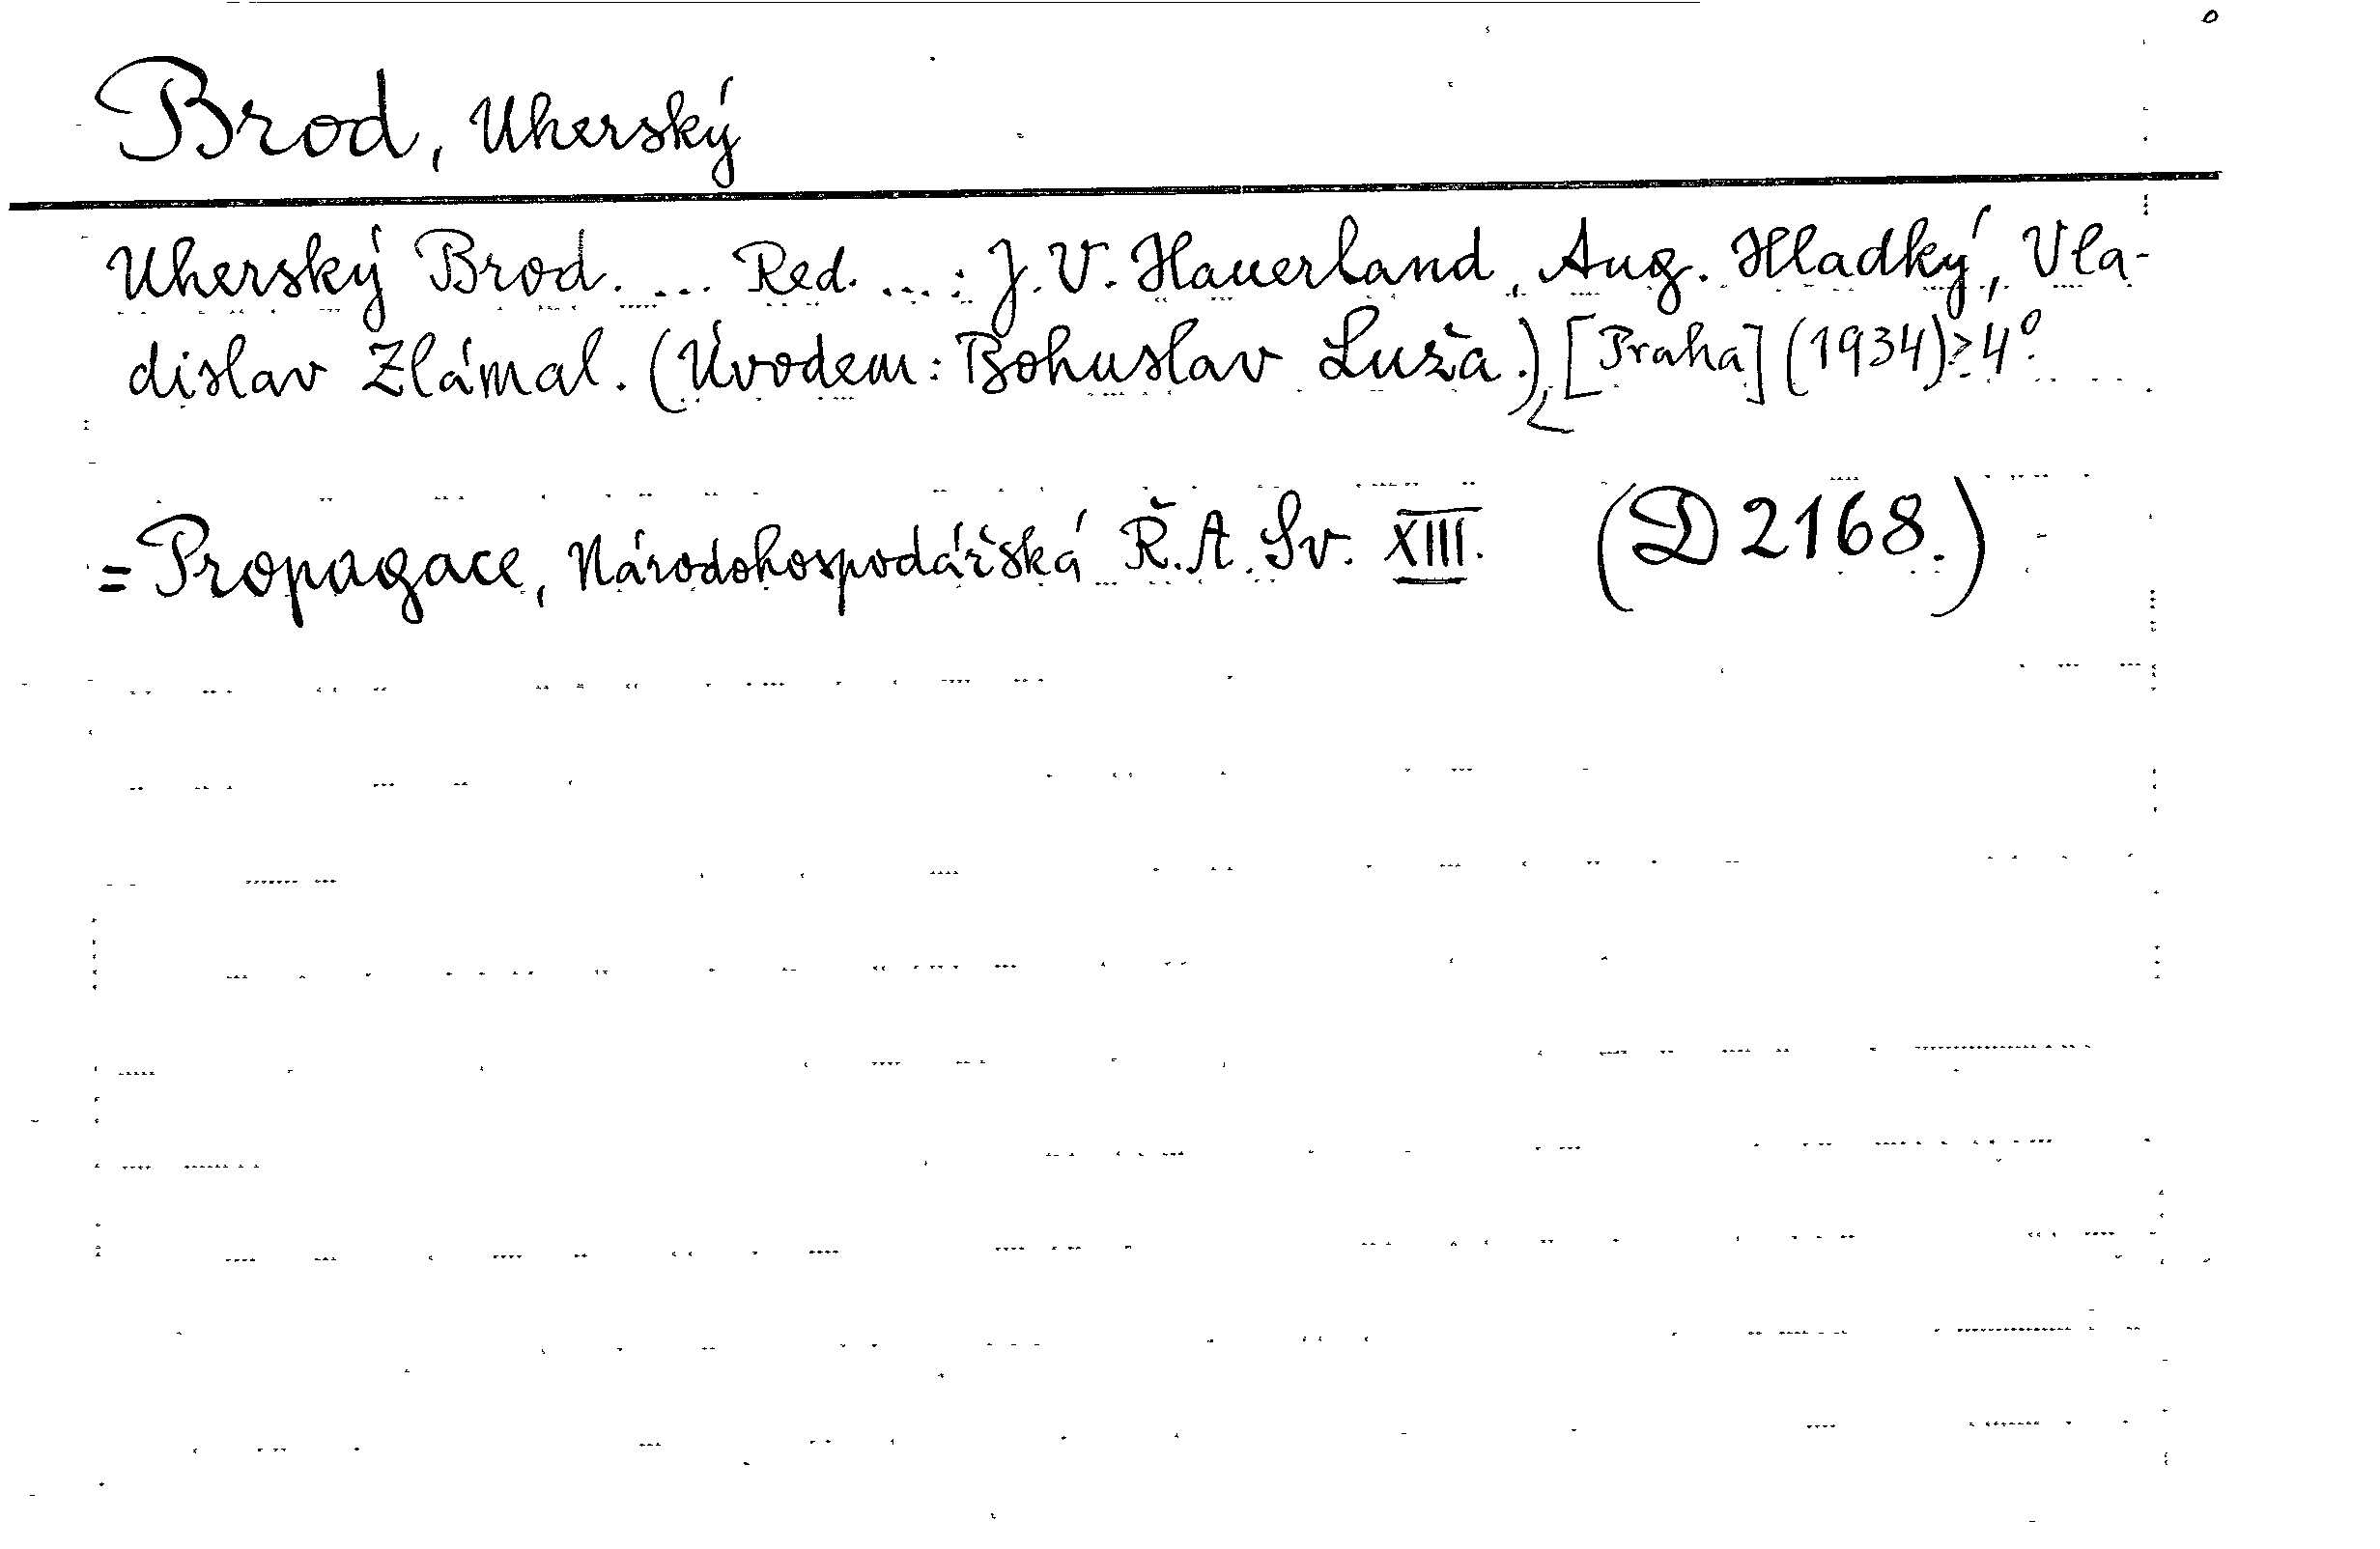 Brod, Uherský
Uherský Brod. ... Red. ...: J. V. Hauerland, Aug. Hladký, Vla-
dislav Zlámal. (Úvodem: Bohuslav Luža.) [Praha] (1934). 4°.
= Propagace, Národohospodářská Ř. A. Sv. XIII. (D 2168.)